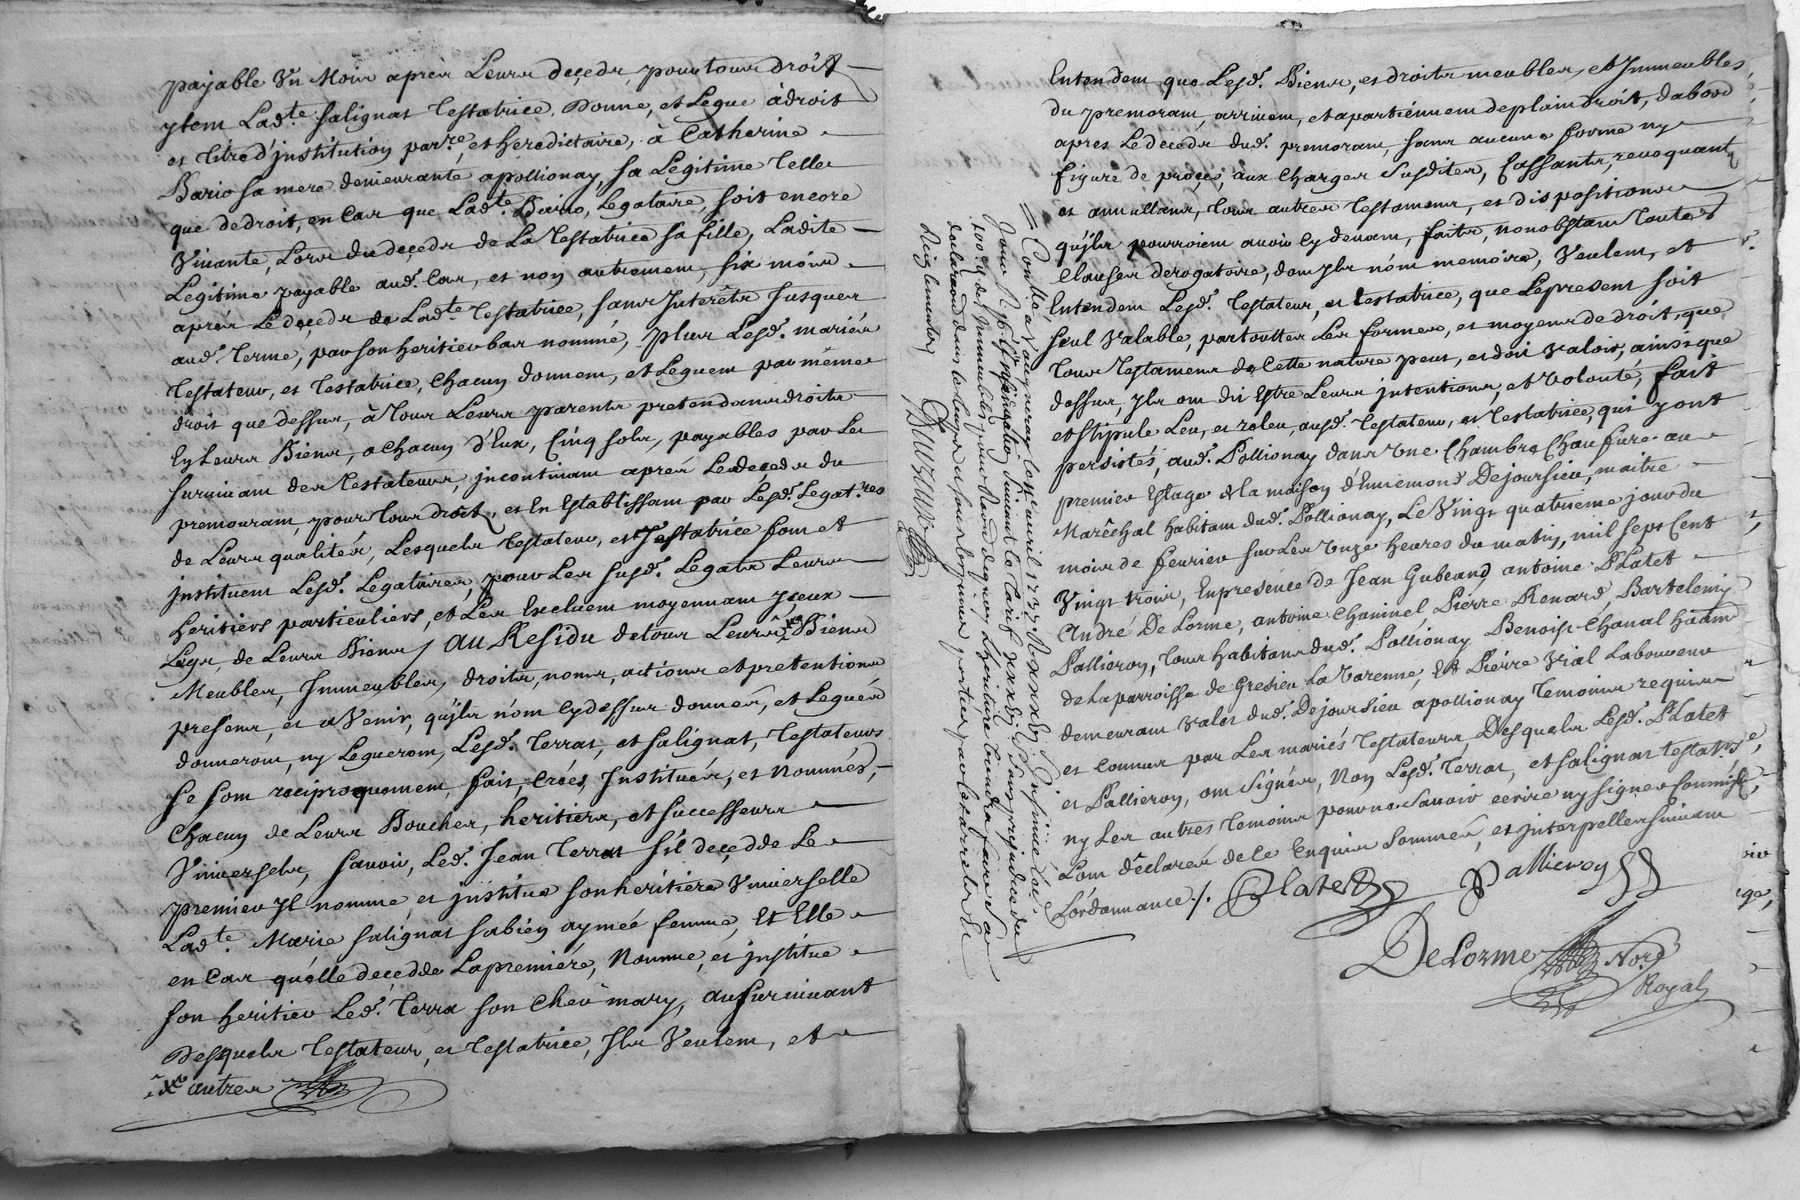 payable Un Mois apres Leurs deçeds, pour tous droits
ytem Lad.te Salignat Testatrice, Donne, et Legue à droit
et titre d'jnstitution par.re, et hereditaire, à Catherine
Bario sa mere demeurante apollionay, sa Légitime Telle
que de droit, en Cas que Lad.te Bario, Legataire, soit encore
Vivante, Lors du deçeds de La Testatrice sa fille, Ladite
Legitime payable aud. Cas, et non autrement, six mois
aprés Le deçeds de Lad.te Testatrice, sans Jnterêts Jusques
aud. Terme, par son heritier bas nommé, plus Lesd. mariés
Testateur, et Testatrice, Chacun donnent, et Leguent par même
droit que dessus, à Tous Leurs parents pretendants droits
En Leurs Biens, a Chacun d'Eux, Cinq sols, payables par Le
survivant des Testateurs, jncontinant aprés Le deceds du
premourant, pour Tous droits, et En Establissant par Lesd. Legat.res
de Leurs qualités, Lesquels Testateur, et Testatrice font et
jnstituent Lesd. Legataires, pour Les susd. Legats Leurs
heritiers particuliers, et Les Excluent moyennant yceux
de Leurs Biens / Au Residu de tous Leurs Biens
Meubles, Jmmeubles, droits, noms, actions et pretentions
presents, et a Venir, qu'jls n'ont Cy dessus donnés, et Legués
donneront, ny Legueront, Lesd. Terrat, et Salignat, Testateurs
se sont reciproquement, fait, Créés, Jnstitués, et Nommés,
Chacun de Leurs Bouches, heritiers, et successeurs
Vniversels, savoir, Led. Jean Terrat s'il deçedde Le
premier Jl nomme et jnstitue son heritiere Vniverselle
Lad.te Marie Salignat sa bien aymée femme, Et Elle
en Cas qu'elle decedde La premiére, Nomme, et jnstitue
son heritier Led. Terra son Cher mary, au survivant
Desquels Testateur, et Testatrice, Jls Veulent, et
autres
Entendent que Lesd. Biens, et droits meubles, et Jmmeubles
du premorant, arrivent, et apartiennent de plain droit, dabord
apres Le deceds dud. premorant, sans aucune forme ny
figure de proçes, aux Charges susdites, Cassants, revoquants
et annullants, Tous autres Testaments, et dispositions
qu'jls pourroient avoir Cy devant, faits, nonobstant Toutes
Clauses derogatoire, dont Jls n'ont memoire, Veulent, et
Entendent Lesd. Testateur, et testatrice, que Le present soit
seul Valable, par toutes Les formes, et moyens de droit, que
Tous Testaments de Cette nature peut, et doit Valoir, ainsi que
dessus, Jls ont dit Estre Leurs jntentions, et Volonté, fait
et stipulé Leu, et releu, ausd. Testateur, et Testatrice, qui y ont
persistés, aud. Pollionay dans Vne Chambre Chaufure au
premier Estage de la maison d'Enniemond Dejoursieu, maitre
Marêchal habitant dud. Pollionay, Le Vingt quatrieme jour du
mois de fevrier sur Les Onze heures du matin, mil sept Cent
Vingt trois, En presence de Jean Gubeand, antoine Platet
André De Lorme, antoine Chaninel, Pierre Renard, Bartelemy
Pallieron, Tous habitans dud. Pollionay Benoist Chanal
de La parroisse de Gresieu La Varenne, Et Pierre Vial Laboureur
demeurant Valet dud. Dejoursieu apollionay Temoins requis
et Connus par Les mariés Testateurs, Desquels Lesd. Platet
et Pallieron, ont signés, Non Lesd. Terrat, et Salignat testat.rs
ny Les autres Temoins pour ne savoir ecrire ny signer
L'ont déclarés de Ce Enquis sommés, et jnterpellés suivant
L'ordonnance /. Platet Pallieron
DeLorme No.re
Royal